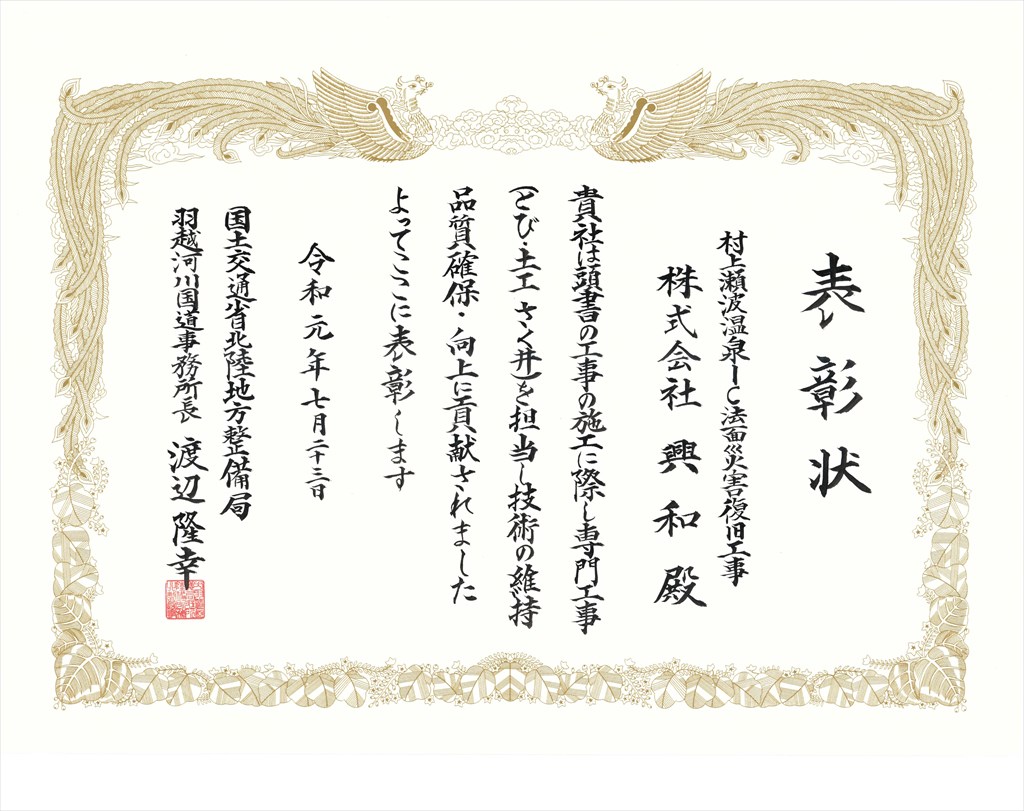 表彰状
村上瀬波温泉IC法面災害復旧工事
株式会社 興和 殿
貴社は頭書の工事の施工に際し専門工事
(とび・土工 さく井)を担当し技術の維持
品質確保・向上に貢献されました
よってここに表彰します
令和元年七月二十三日
国土交通省北陸地方整備局
羽越河川国道事務所長 渡辺 隆幸